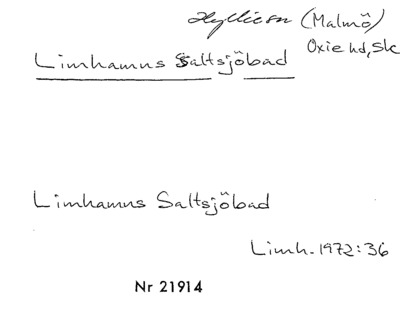 Hyllie sn (Malmö)
Oxie hd, Sk
Limhamns Saltsjöbad
Limhamns Saltsjöbad
Limh. 1972:36
Nr 21914